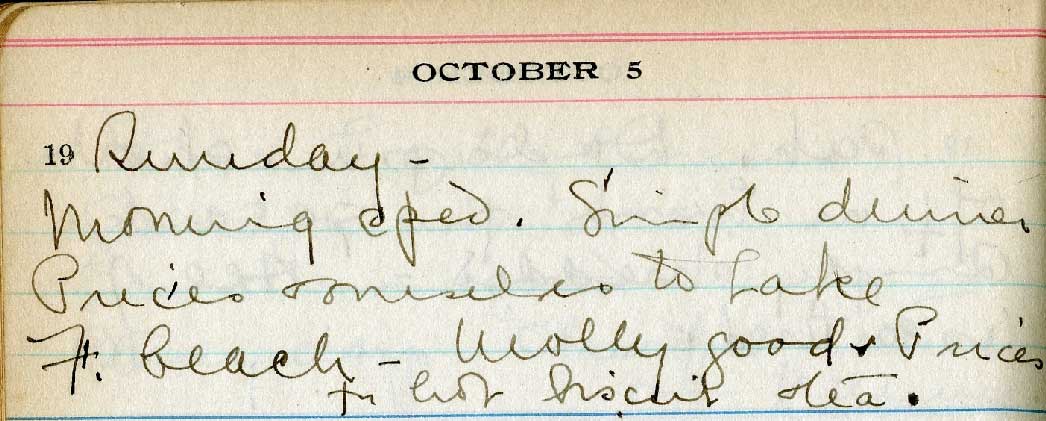 OCTOBER 5
19 Sunday -
Morning sped. Simple dinner
Prices & ourselves to Lake
F. beach - Mollygoods & Prices
to hot biscuit & tea.